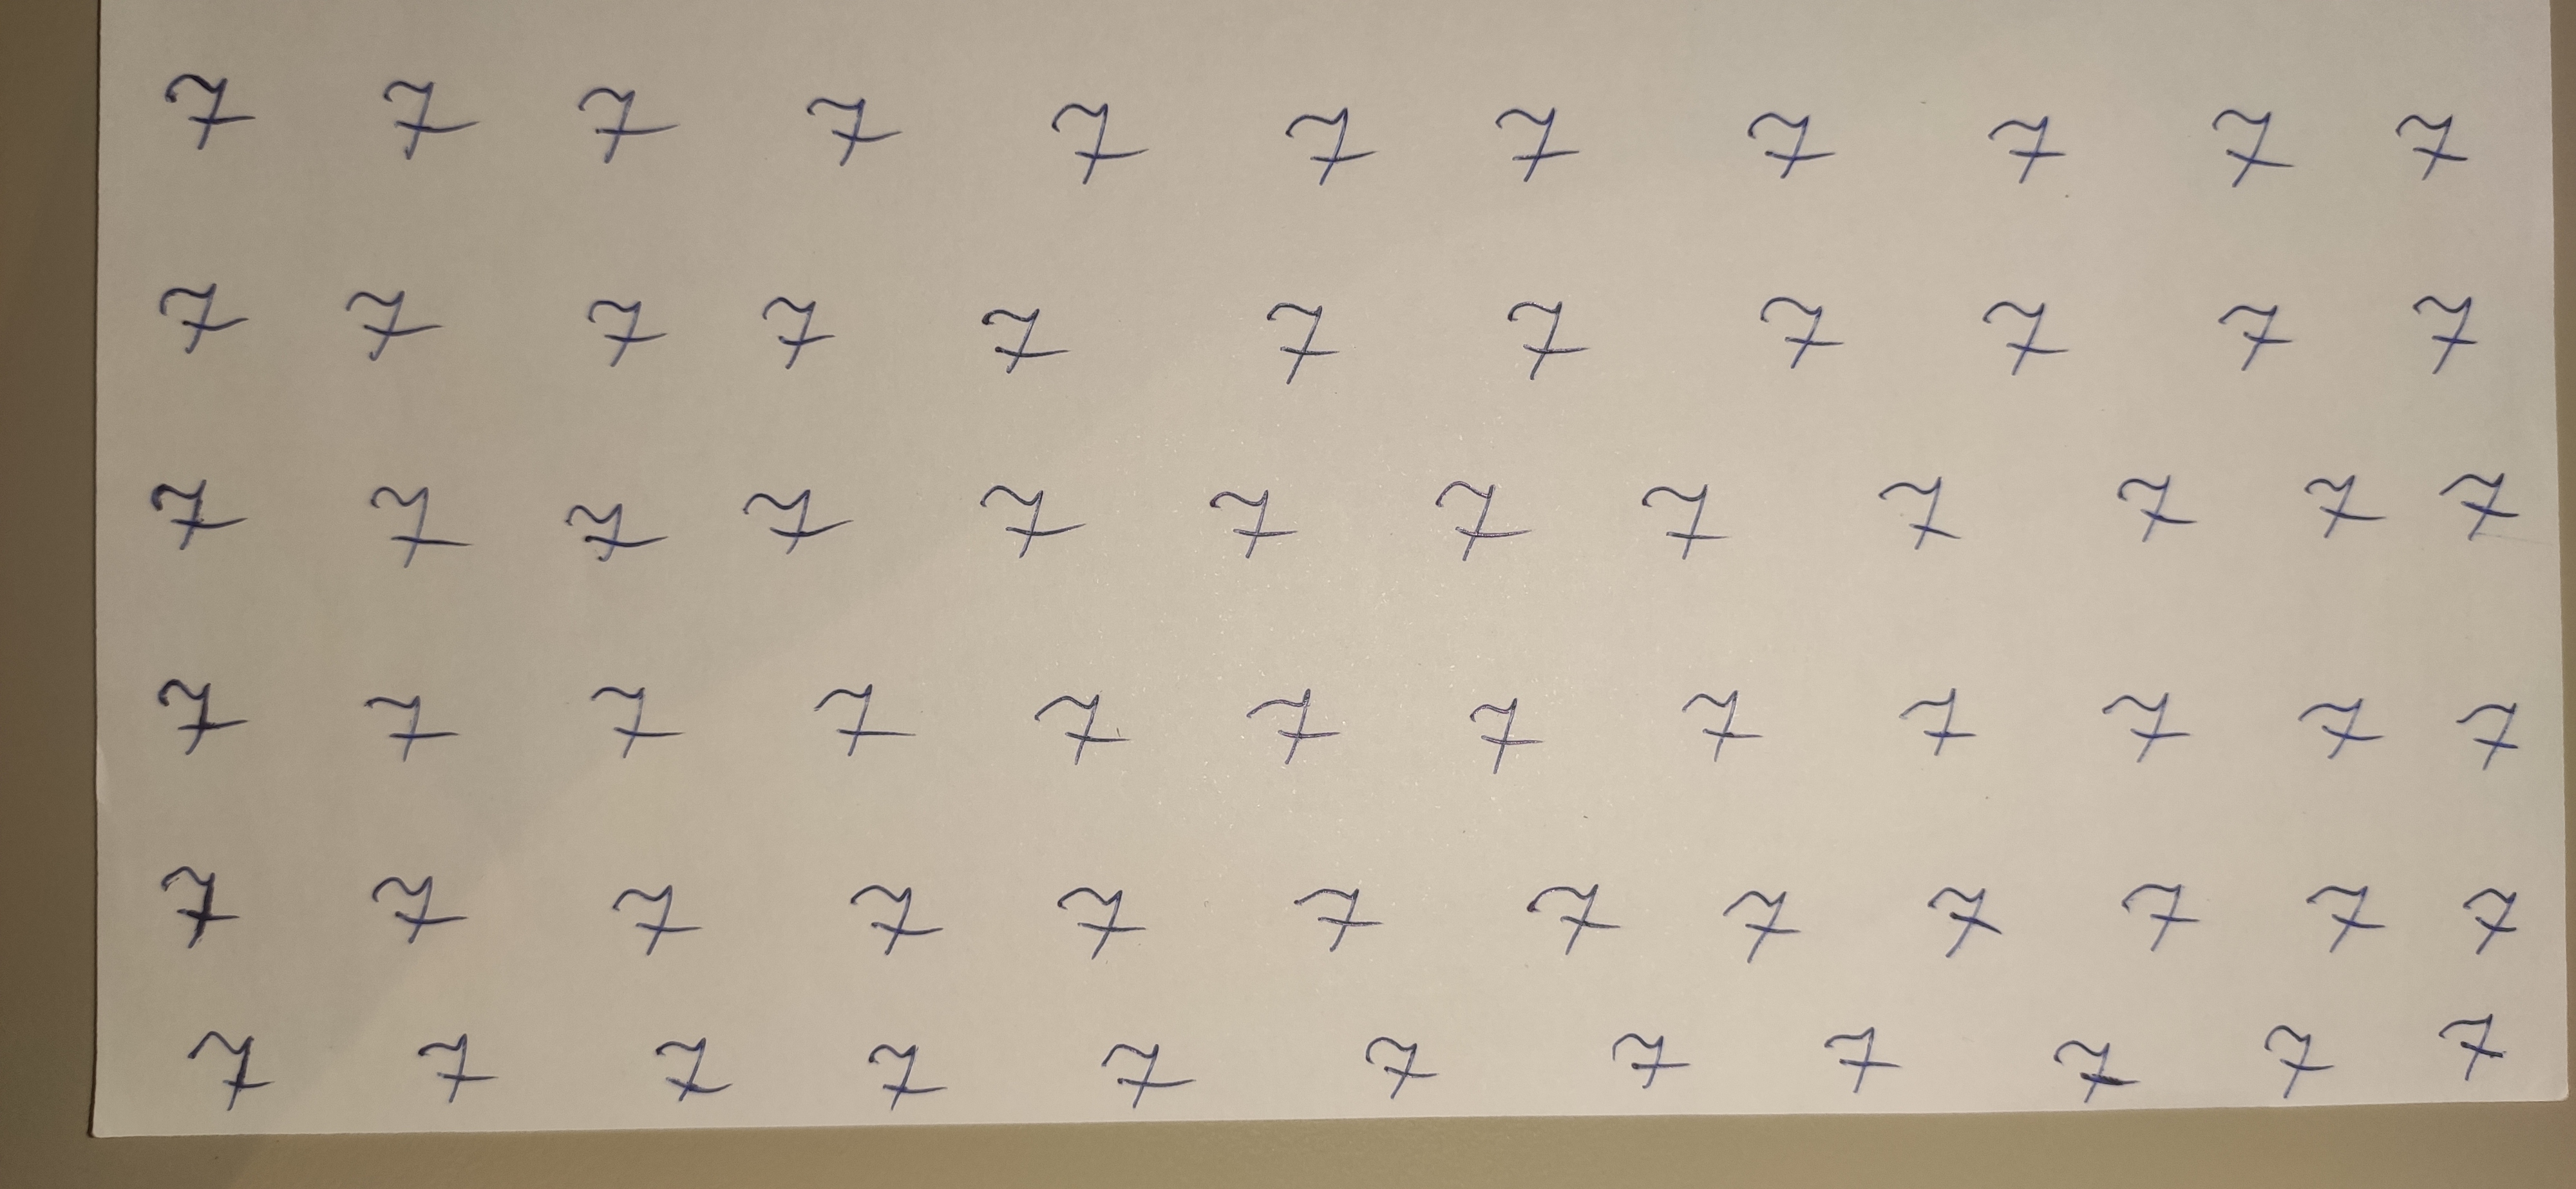 7 7 7 7 7 7 7 7 7 7 7
7 7 7 7 7 7 7 7 7 7 7
7 7 7 7 7 7 7 7 7 7 7 7
7 7 7 7 7 7 7 7 7 7 7 7
7 7 7 7 7 7 7 7 7 7 7 7
7 7 7 7 7 7 7 7 7 7 7